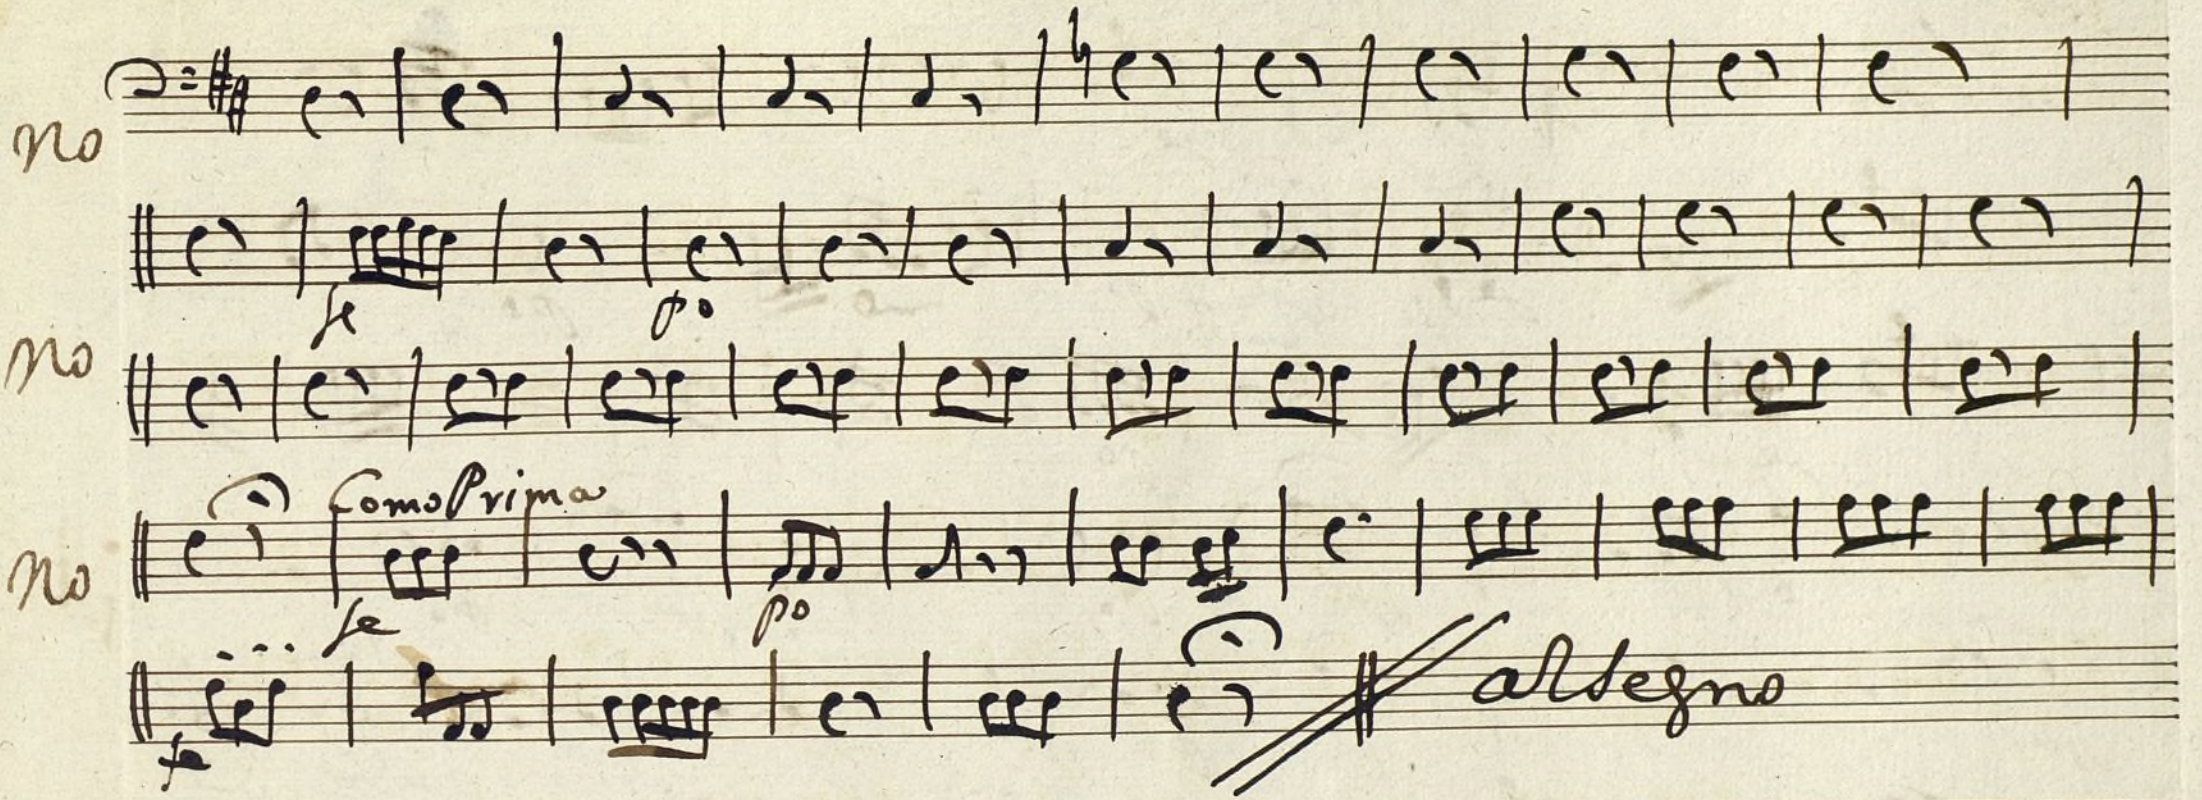 No
fe po
No
Como Prima
No
fe po
fe
al segno